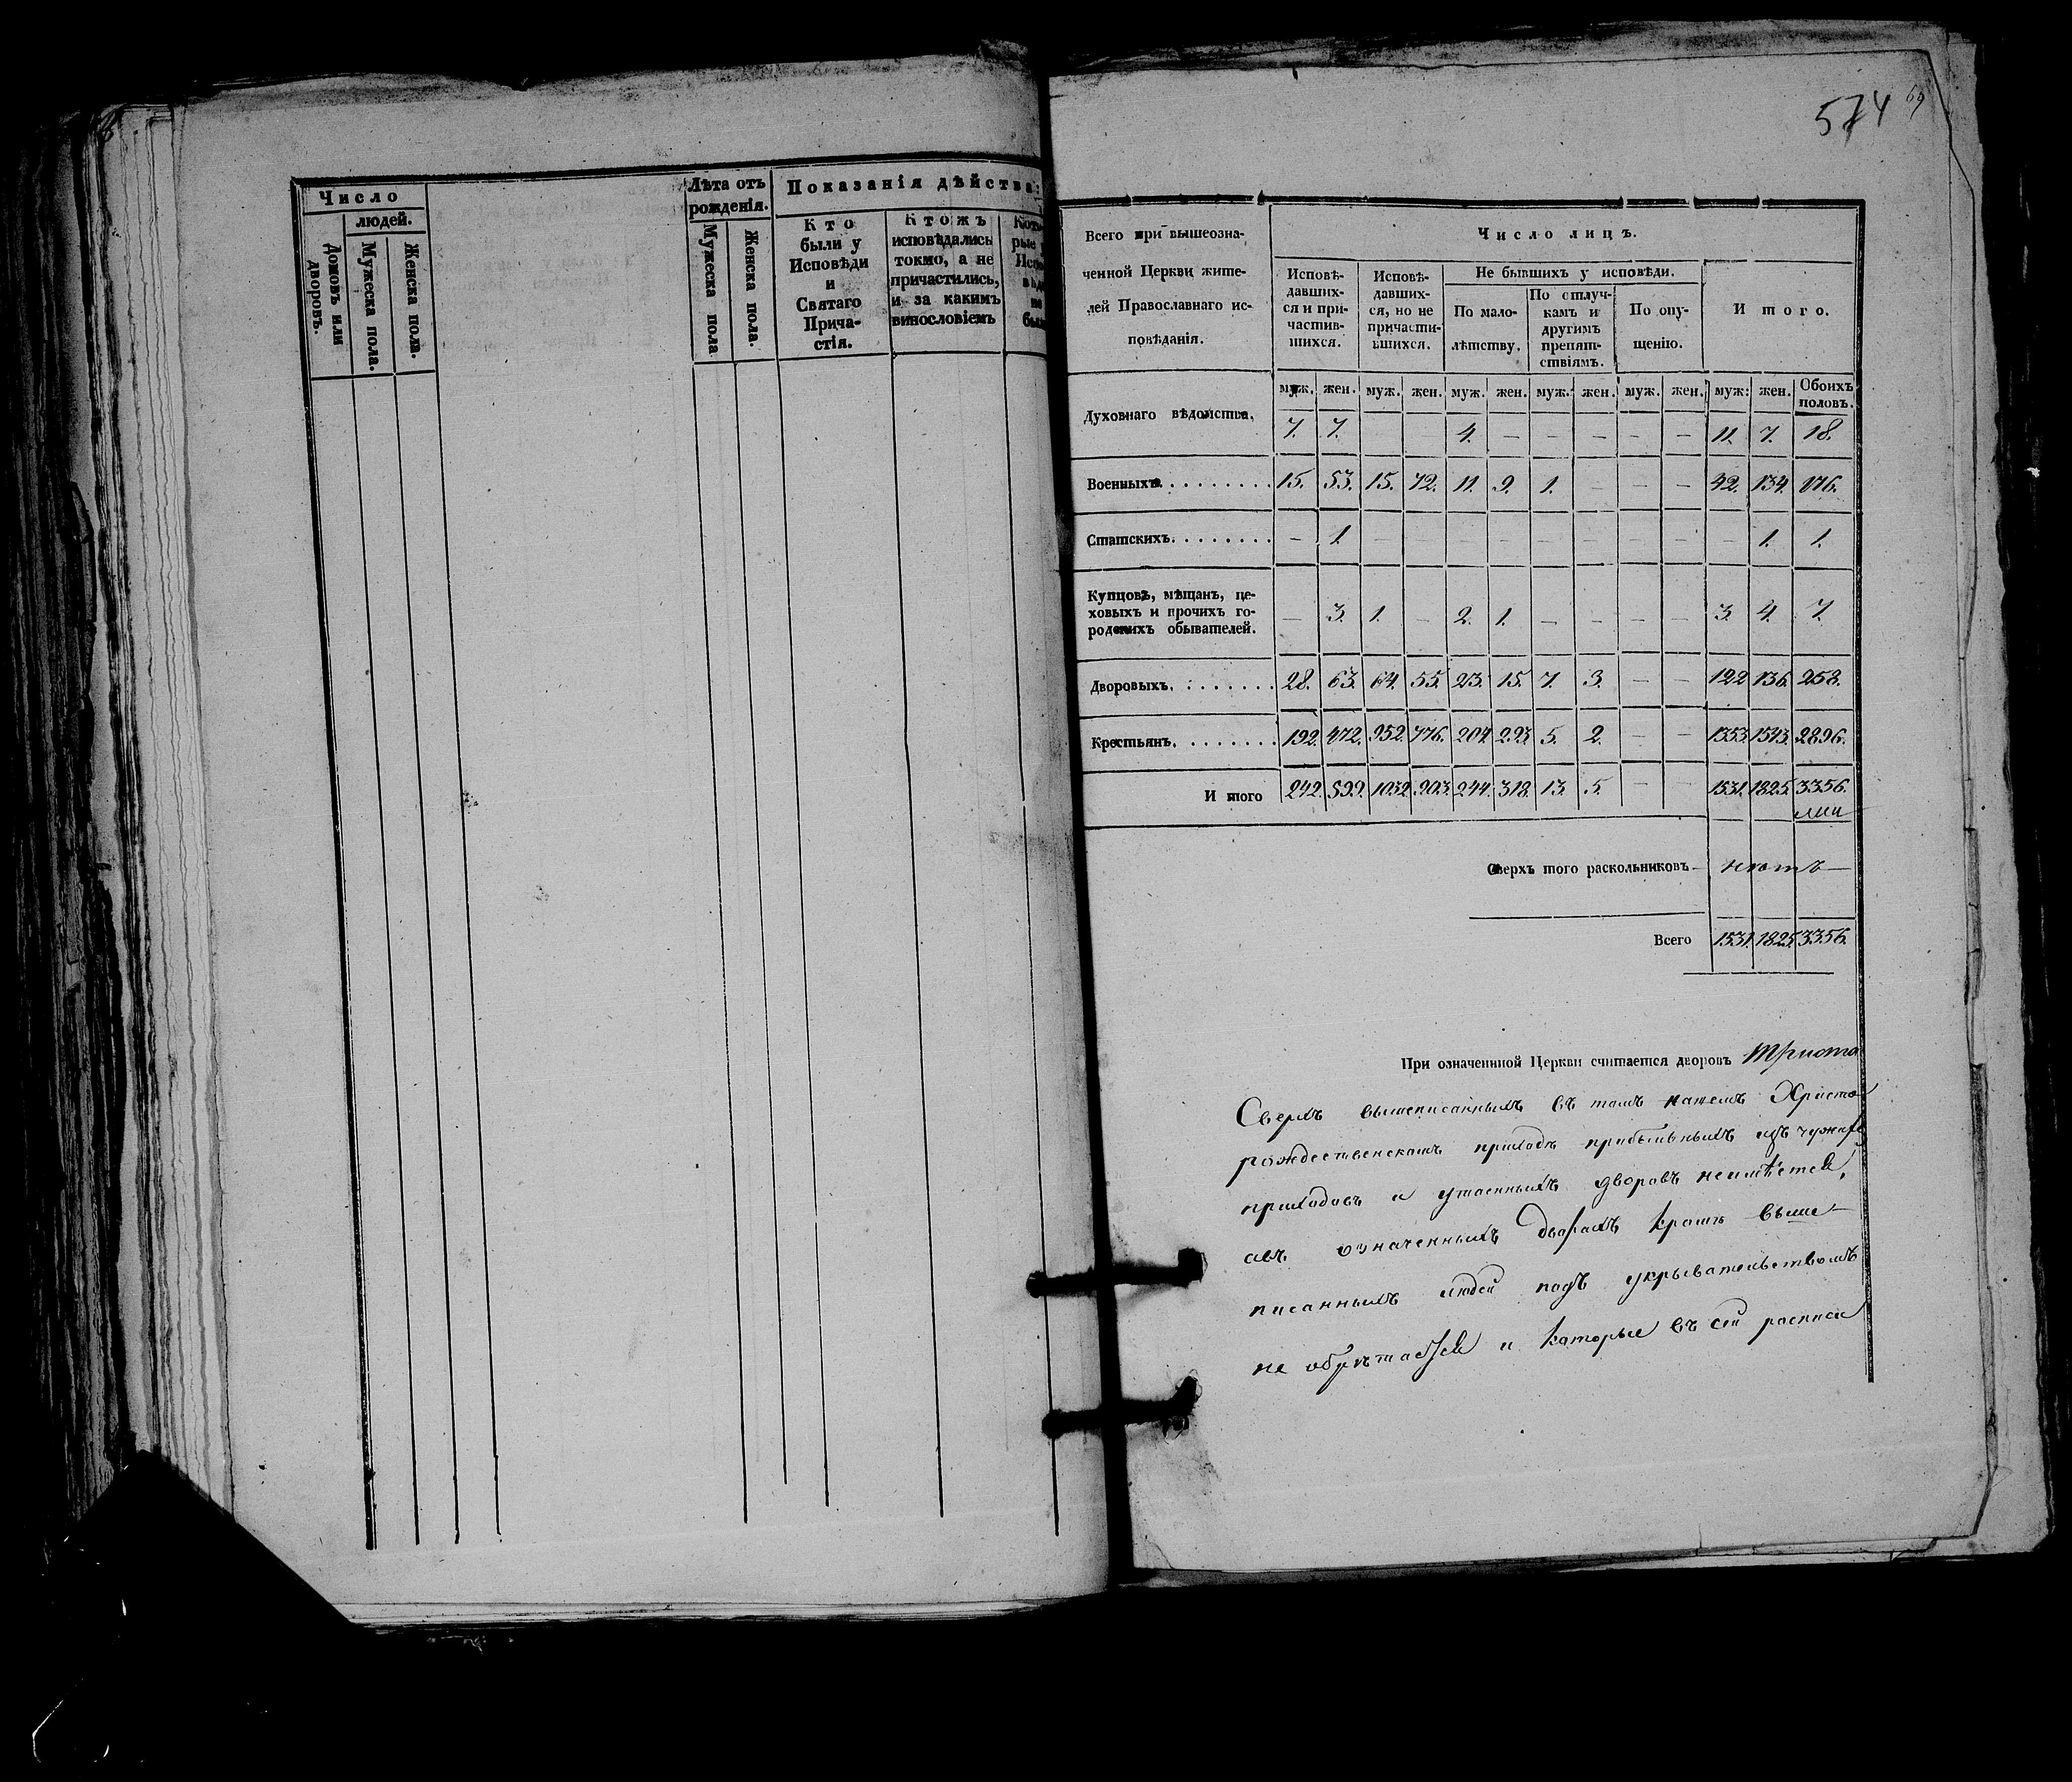 Число
людей.
Домовъ или дворовъ.
Мужеска пола.
Женска пола.
Лѣта отъ
рожденія.
Мужеска пола
Женска пола.
Показанія дѣйства:
Кто
были у
Исповѣди
и
Святаго
Прича-
стія.
Ктожъ
исповѣдались
токмо, а не
причастились,
и за какимъ
винословіемъ
574 69
Всего при вышеозна-
ченной Церкви жите-
лей Православнаго ис-
повѣданія.
Число лицъ.
Исповѣ-
давших-
ся и при-
частив-
шихся.
Исповѣ-
давших-
ся, но не
причасти-
вшихся.
Не бывшихъ у исповѣди.
По мало-
лѣтству.
По отлуч-
камъ и
другимъ
препят-
ствіямъ.
По опу-
щенію.
Итого.
муж. жен. муж. жен. муж. жен. муж. жен. муж. жен. муж: жен. Обоихъ половъ.
Духовнаго вѣдомства. 7. 7. 4. — — — — — — 11. 7. 18.
Военныхъ. 15. 53. 15. 72. 11. 9. 1. — — — 42. 134. 176.
Статскихъ. — 1. — — — — — — — — — 1. 1.
Купцовъ, мѣщанъ, це-
ховыхъ и прочихъ го-
родскихъ обывателей. — 3. 1. — 2. 1. — — — — 3. 4. 7.
Дворовыхъ. 28. 63. 64. 55. 23. 15. 7. 3. — — 122 136. 258.
Крестьянъ. 192. 472. 952. 776. 204. 293. 5. 2. — — 1353. 1543. 2896.
И того 242. 599. 1032. 903. 244. 318. 13. 5. — — 1531. 1825. 3356.
Сверхъ того раскольниковъ — нѣтъ —
Всего 1531. 1825. 3356.
При означенной Церкви считается дворовъ Триста
Сверхъ вышеписанныхъ въ томъ нашемъ Христо
рождественскомъ приходѣ прибылыхъ изъ чужихъ
приходовъ и утаенныхъ дворовъ неимѣется,
авъ означенныхъ дворахъ кромѣ выше
писанныхъ людей подъ укрывательствомъ
не обрѣтается и которые въ сей росписи